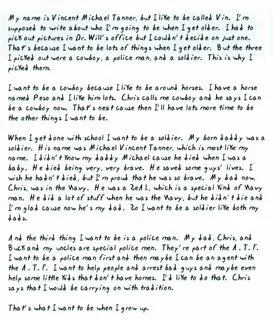 My name is Vincent Michael Tanner, but I like to be called Vin. I'm
supposed to write about who I'm going to be when I get older. I had to
pick out pictures in Dr. Will's office but I couldn't decide on just one.
That's because I want to be lots of things when I get older. But the three
I picked out were a cowboy, a police man, and a soldier. This is why I
picked them.
I want to be a cowboy because I like to be around horses. I have a horse
named Peso and I like him lots. Chris calls me cowboy and he says I can
be a cowboy now. That's neat cause then I'll have lots more time to be
the other things I want to be.
When I get done with school I want to be a soldier. My born daddy was a
soldier. His name was Michael Vincent Tanner, which is most like my
name. I didn't know my daddy Michael cause he died when I was a
baby. He died being very, very brave. He saved some guys' lives. I
wish he hadn't died, but I'm proud that he was so brave. My dad now,
Chris, was in the Navy. He was a SeAL, which is a special kind of Navy
man. He did a lot of stuff when he was the Navy, but he didn't die and
I'm glad cause now he's my dad. So I want to be a soldier like both my
dads.
And the third thing I want to be is a police man. My dad, Chris, and
Buck and my uncles are special police men. They're part of the A.T.F.
I want to be a police man first and then maybe I can be an agent with
the A.T.F. I want to help people and arrest bad guys and maybe even
help some little kids that don't have homes. I'd like to do that. Chris
says that I would be carrying on with tradition.
That's what I want to be when I grow up.